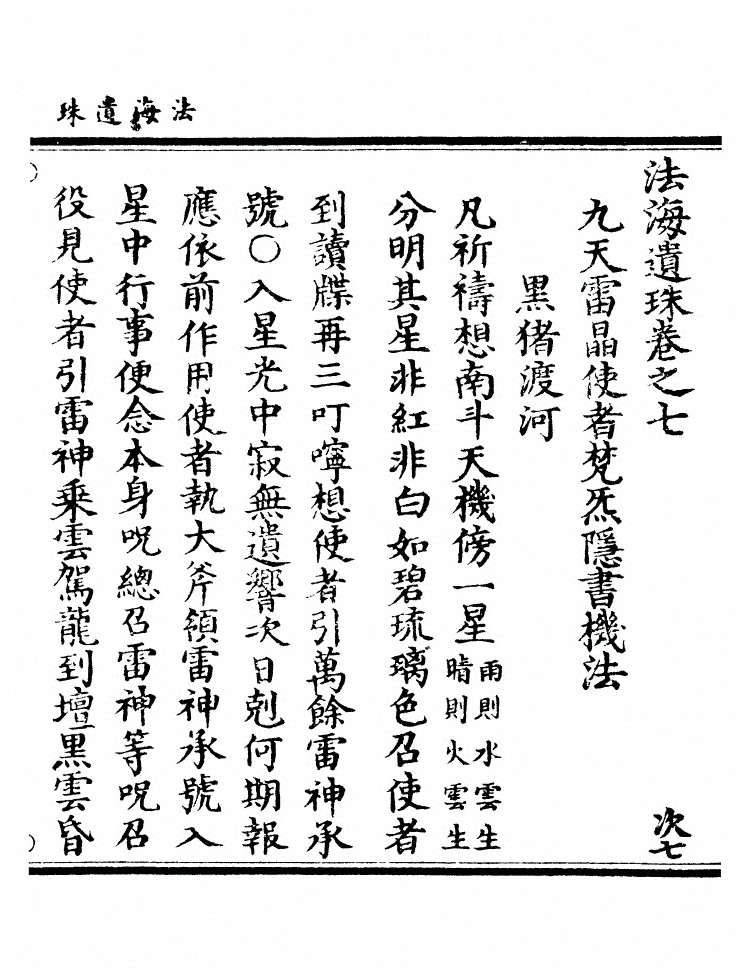 法海遺珠
法海遺珠卷之七
次七
九天雷晶使者梵炁隱書機法
黑猪渡河
凡祈禱想南斗天機傍一星雨則水雲生晴則火雲生
分明其星非紅非白如碧琉璃色召使者
到讀牒再三叮嚀想使者引萬餘雷神承
號〇入星光中寂無遺響次日剋何期報
應依前作用使者執大斧領雷神承號入
星中行事便念本身呪總召雷神等呪召
役見使者引雷神乘雲駕龍到壇黑雲昏